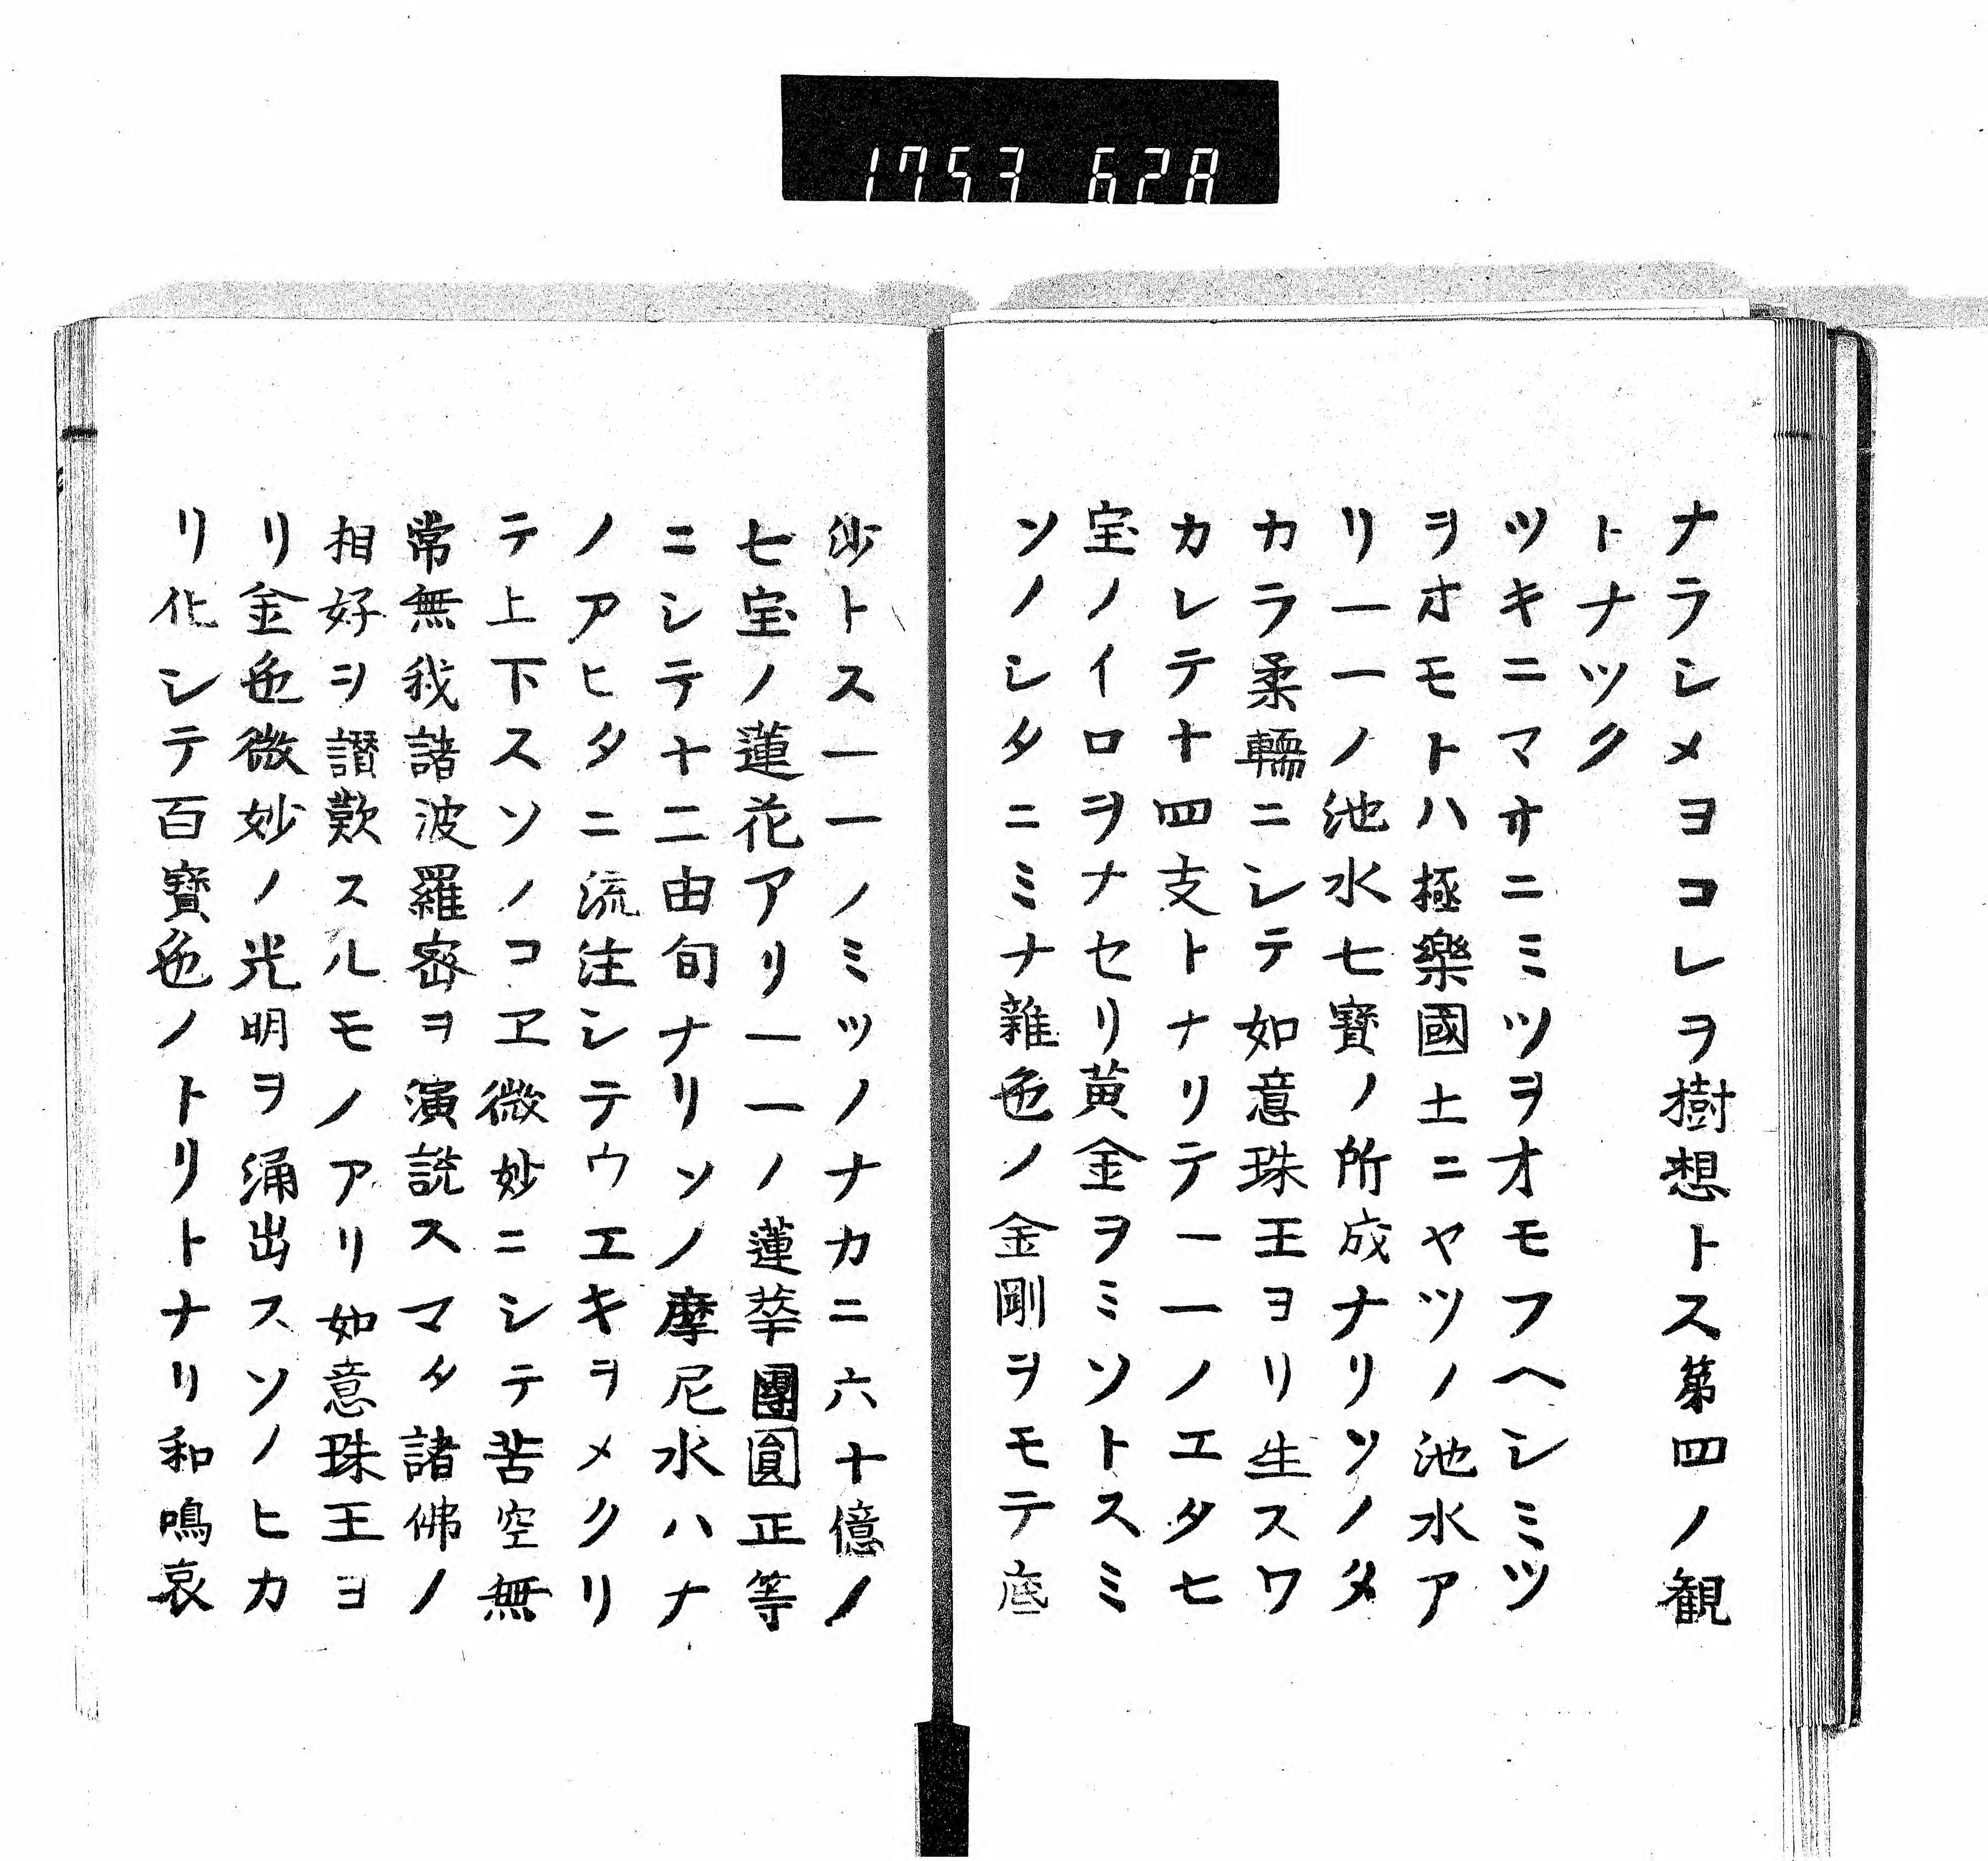 1753 628
ナラシメヨコレヲ樹想トス第四ノ観
トナツク
ツキニマサニミツヲオモフヘシミツ
ヲオモトハ極樂國土ニヤツノ池水ア
リ一一ノ池水七寳ノ所成ナリソノタ
カラ柔輭ニシテ如意珠王ヨリ生スワ
カレテ十四支トナリテ一一ノエタ七
宝ノイロヲナセリ黄金ヲミソトスミ
ソノシタニミナ雜色ノ金剛ヲモテ底
沙トス一一ノミツノナカニ六十億ノ
七宝ノ蓮花アリ一一ノ蓮華團圓正等
ニシテ十二由旬ナリソノ摩尼水ハナ
ノアヒタニ流注シテウエキヲメクリ
テ上下スソノコヱ微妙ニシテ苦空無
常無我諸波羅密ヲ演説スマタ諸佛ノ
相好ヲ讃歎スルモノアリ如意珠王ヨ
リ金色微妙ノ光明ヲ涌出スソノヒカ
リ化シテ百寳色ノトリトナリ和鳴哀